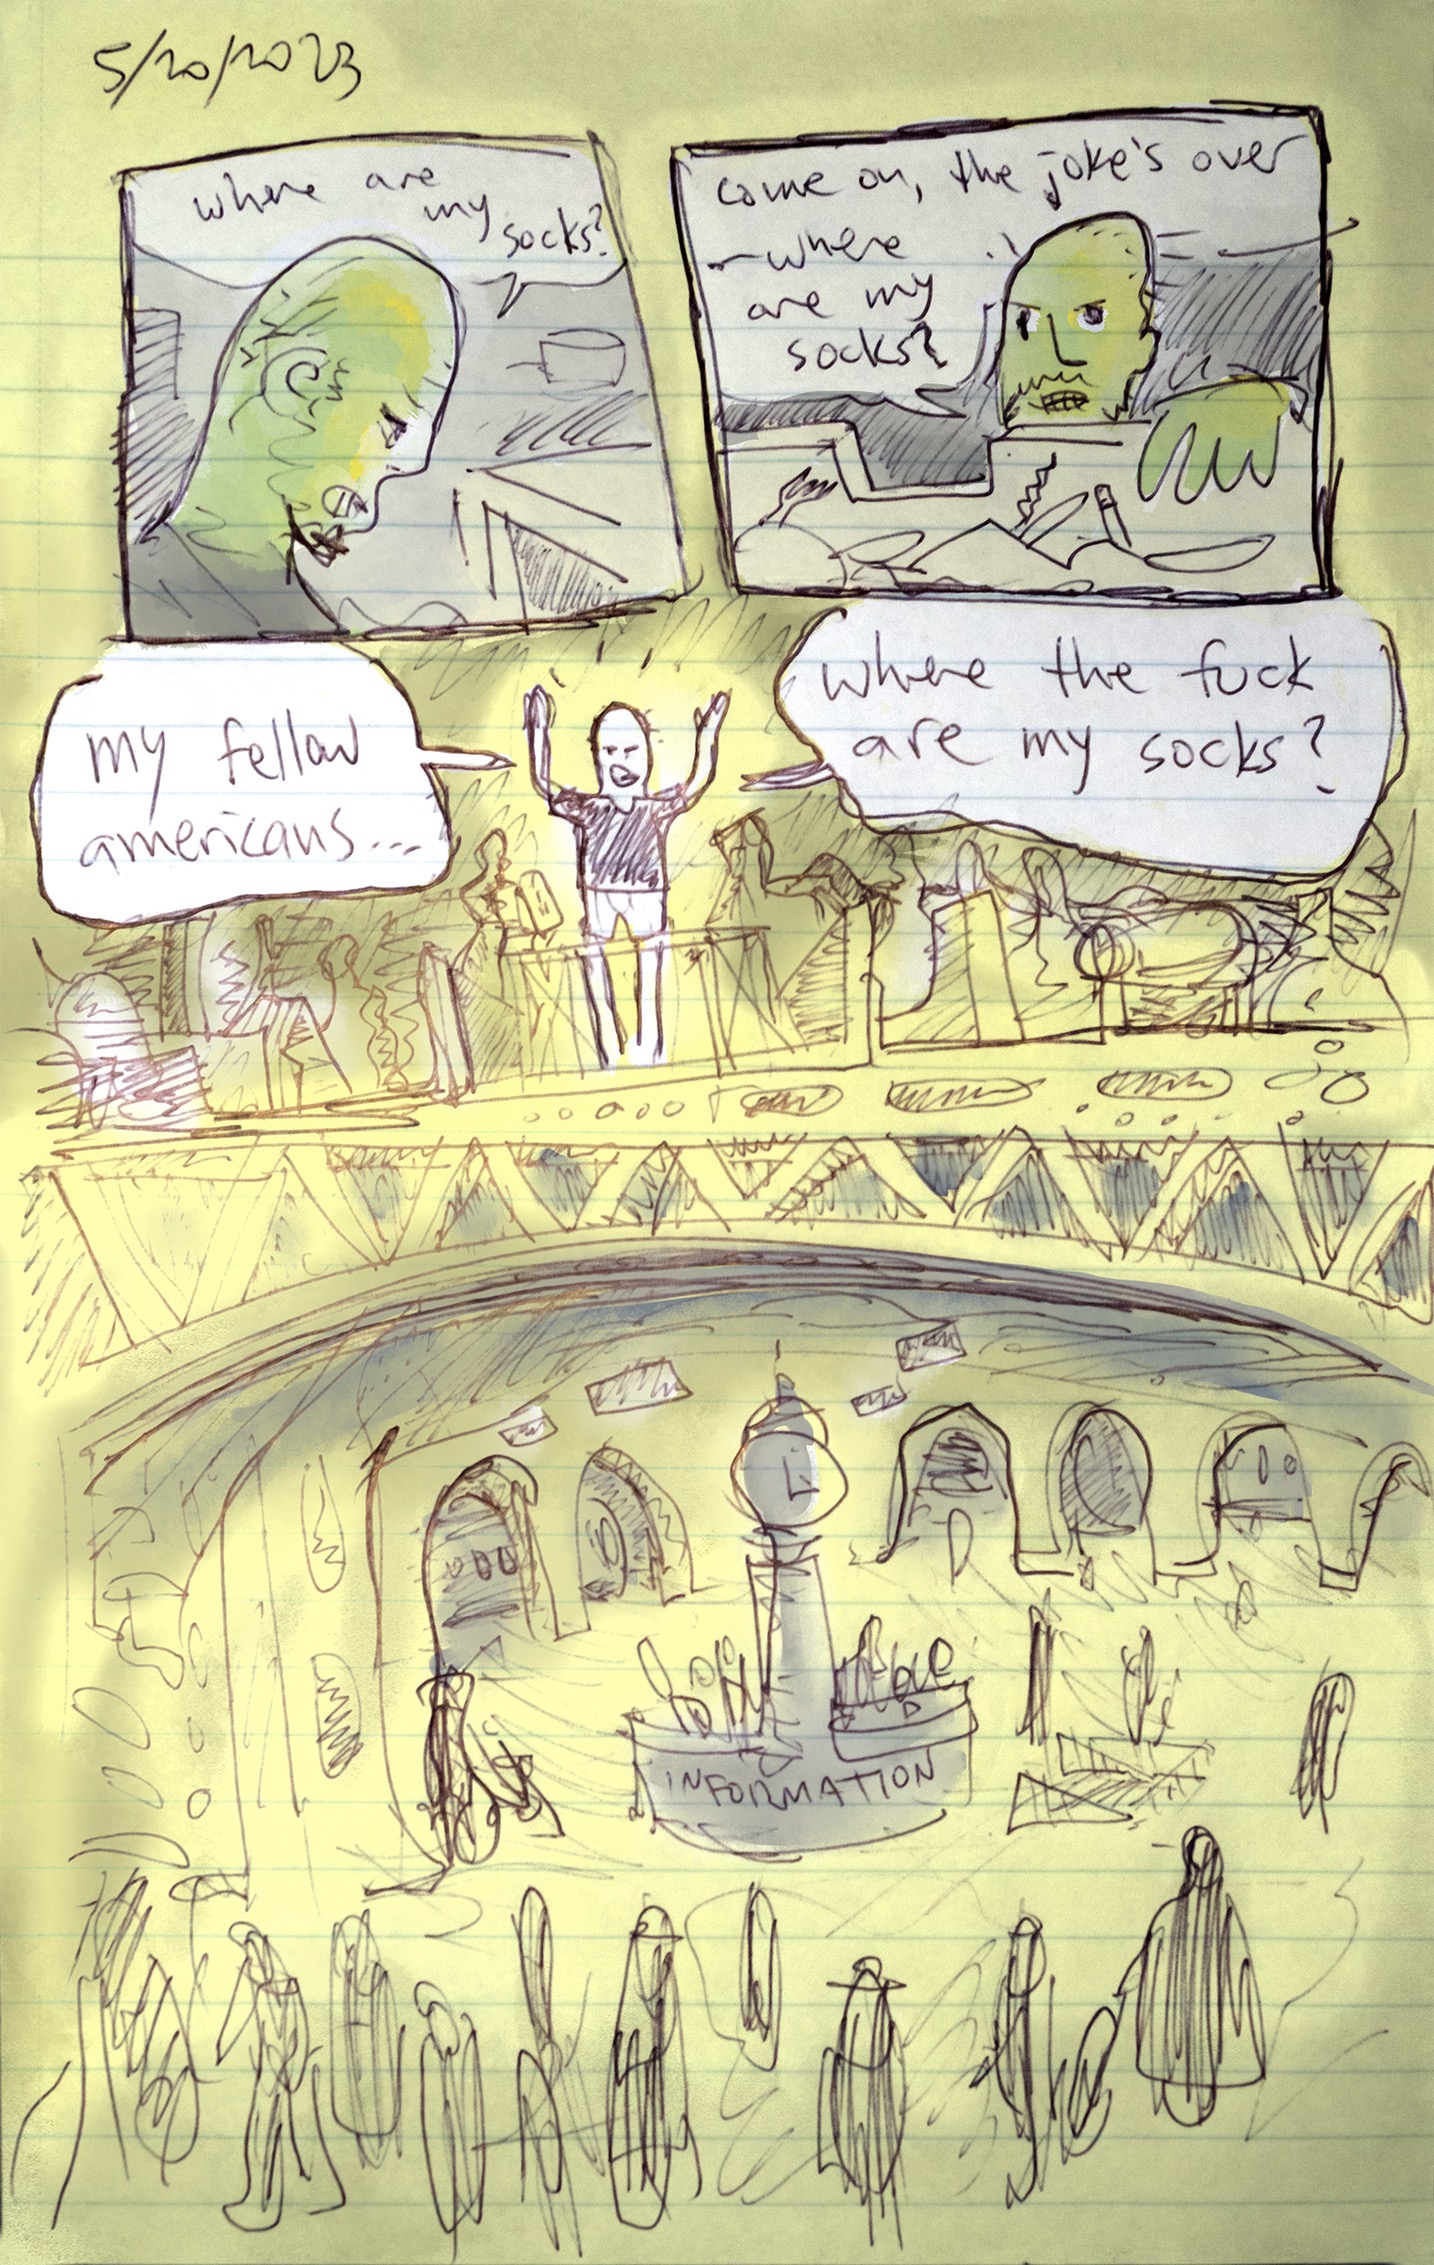 5/20/2023
where are
my
socks?
come on, the joke's over
-where
are my
socks?
my fellow
americans...
where the fuck
are my socks?
INFORMATION